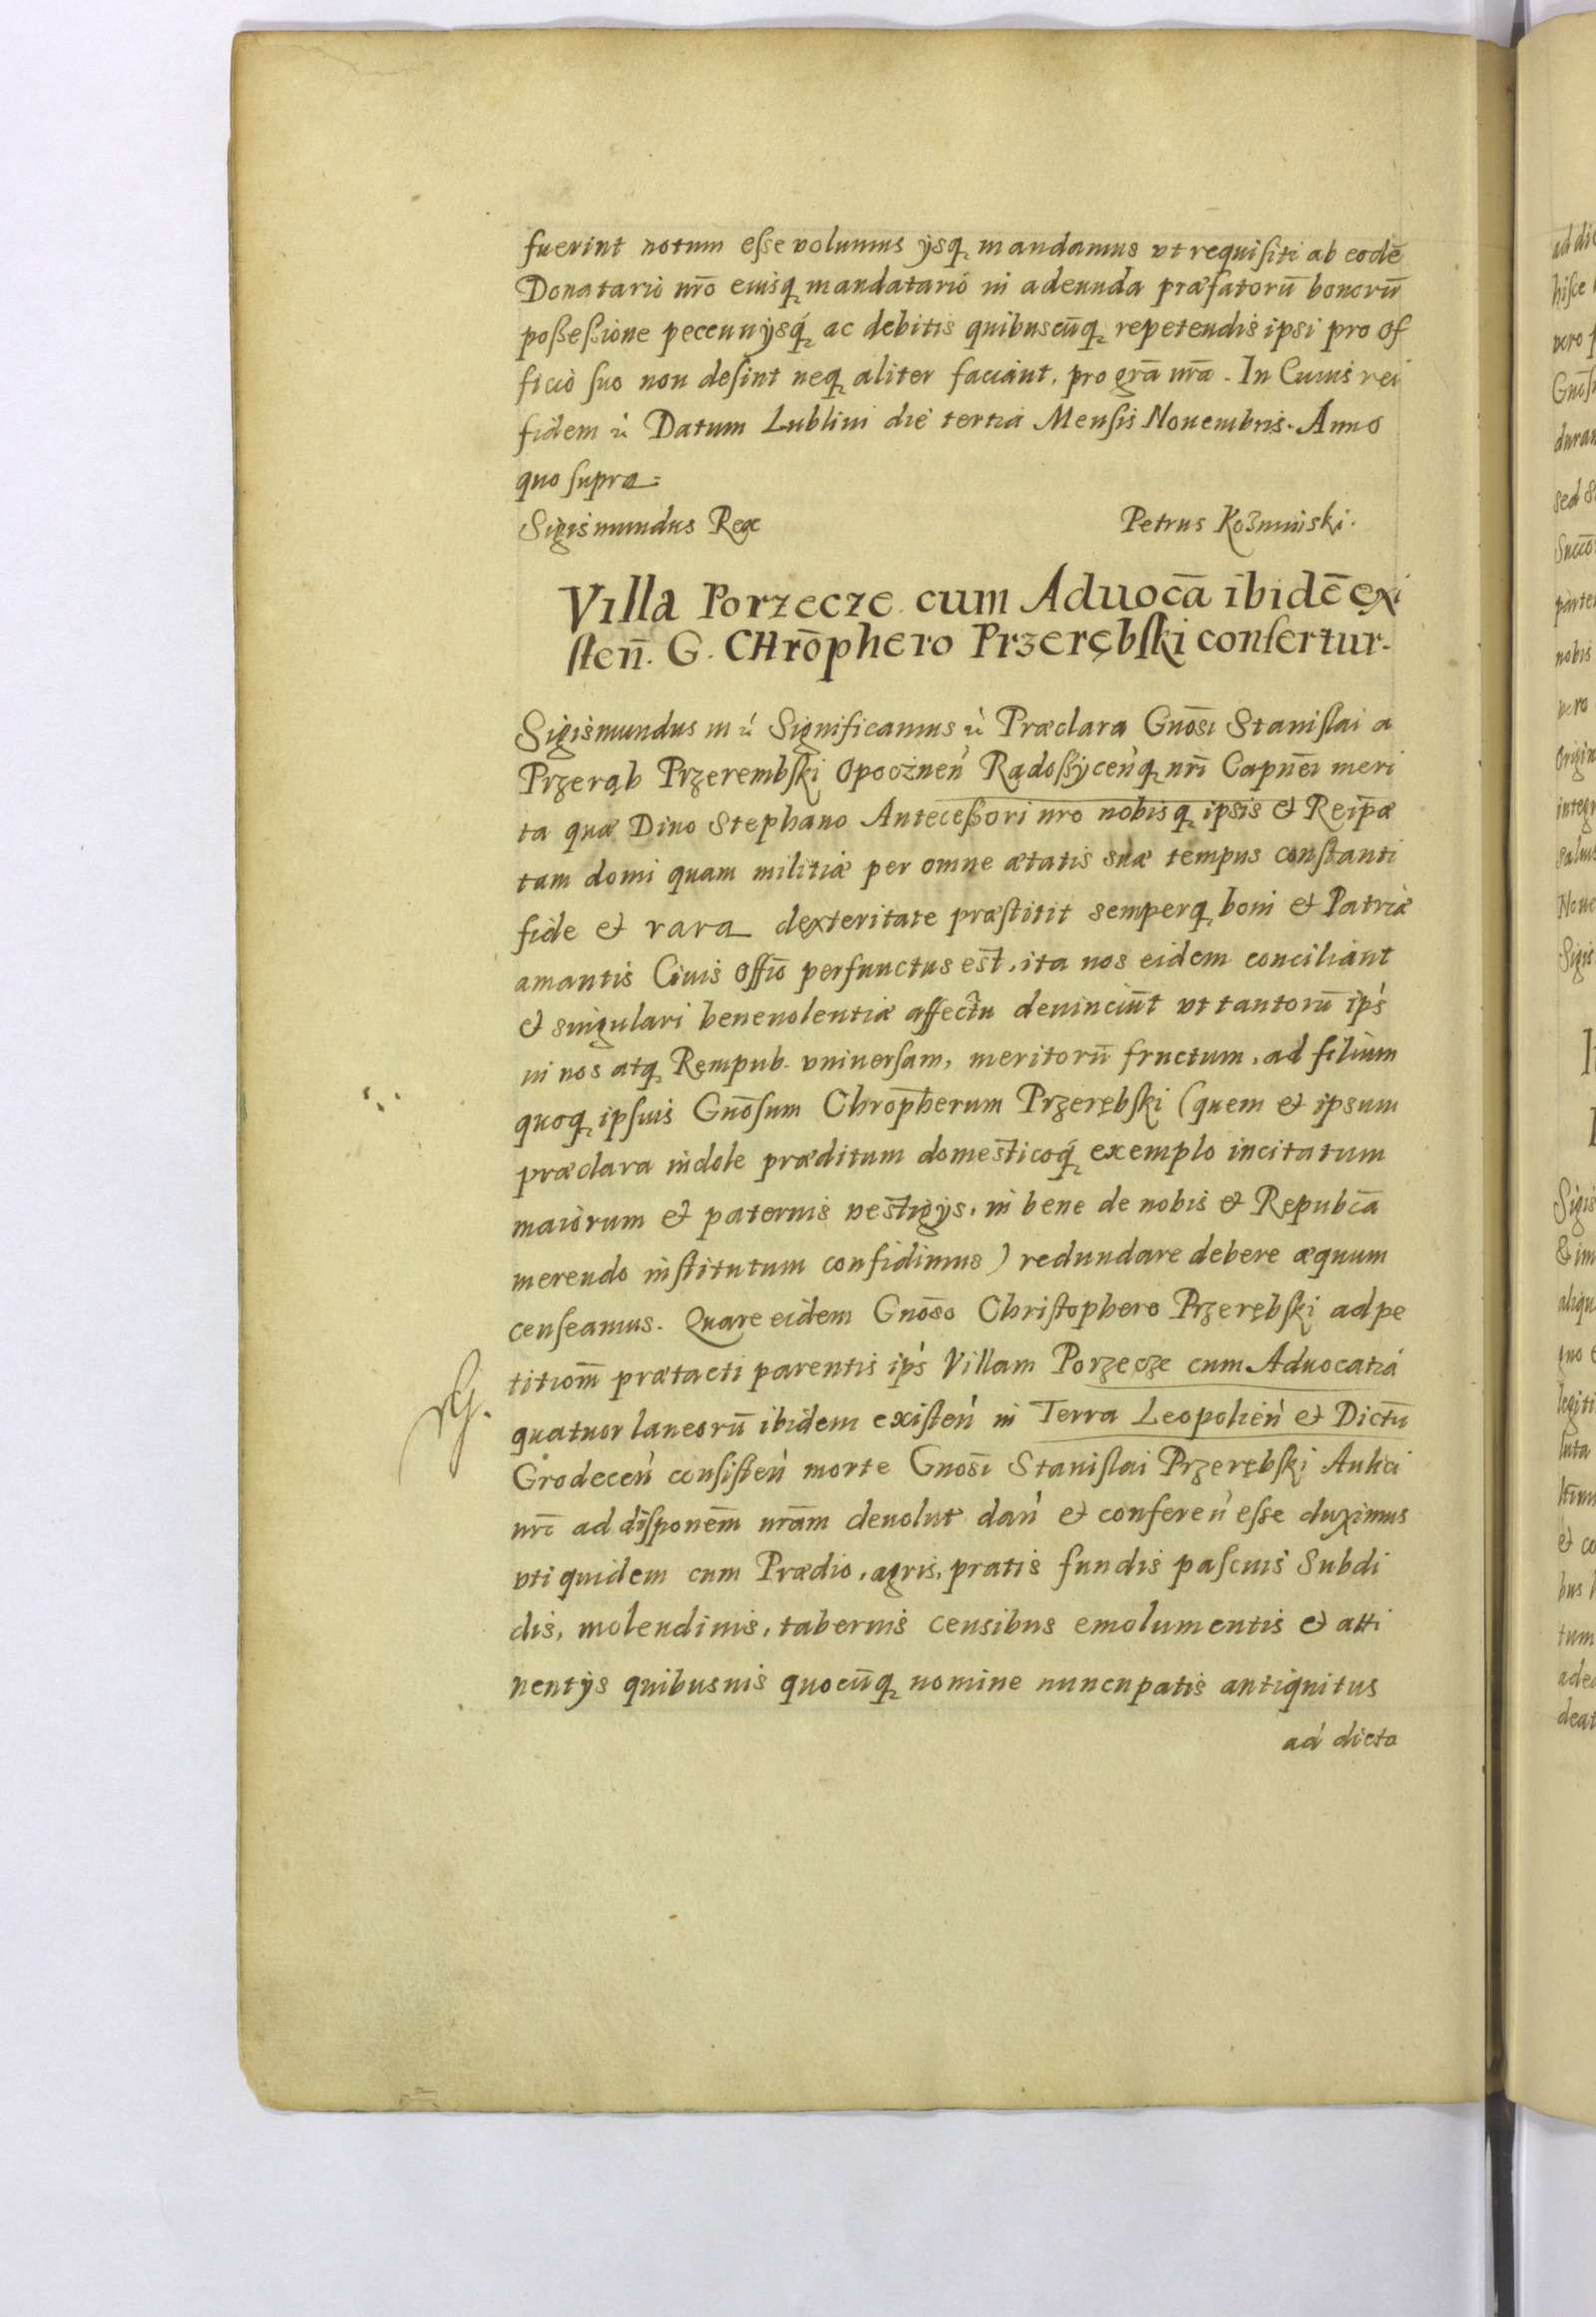 fuerint notum eſse volumus ÿsq̨ mandamus vt requiſiti ab eodē
Donatario nr̄o eiusq̨ mandatario in adeunda præfatorū bonorū
poßeßione pecunÿsq̨́ ac debitis quibuscūq̨ repetendis ipsi pro of
ficio ſuo non deſint neq̨ aliter faciant, pro gr̄a nr̄a. In Cuius rei
fidem ꝛć Datum Lublini die tertia Menſis Nouembris. Anno
quo ſupra:
Sigismundus Rex
Petrus Koʒminski.
Villa Porzecze cum Aduocā ibidē exi
ſten̄. G. CHrōphero Przerębſki confertur.
Sigismundus III ꝛć Significamus ꝛć Præclara Gnōsi Staniſlai a
Przerąb Przerembſki Opocznen̍ Radoßÿcen̍q̨ nr̄i Capn̄ei meri
ta quæ Diuo Stephano Anteceßori nro nobisq̨ ipsis et Reip̄æ
tam domi quam militiæ per omne ætatis suæ tempus conſtanti
fide et rara dexteritate præſtitit semperq̨ boni et Patriæ
amantis Ciuis offiō perfunctus est, ita nos eidem conciliant
et singulari beneuolentiæ affectu deuinciūt vt tantorū ip̍s
in nos atq̨ Rempub. vniuerſam, meritorū fructum, ad filium
quoq̨ ipſius Gnōſum Chrōpherum Przerębſki (quem et ipsum
præclara indole præditum domesticoq̨́ exemplo incitatum
maiorum et paternis vestigÿs, in bene de nobis et Repubc̄a
merendo inſtitutum confidimus) redundare debere æquum
cenſeamus. Quare eidem Gnōso Chriſtophero Przerębſki ad pe
titiom̄ prætacti parentis ip̍s Villam Porzecze cum Aduocatia
quatuor laneorū ibidem exiſten̍ in Terra Leopolien̍ et Dictū
Grodecen̍ conſiſten̍ morte Gnōsi Staniſlai Przerębſki Aulici
nr̄i ad diſponem̄ nrām deuolut dan̍ et conferen̍ eſse duximus
vti quidem cum Prædio, agris, pratis fundis paſcuis Subdi
dis, molendinis, tabernis censibus emolumentis et atti
nentÿs quibusuis quocūq̨ nomine nuncupatis antiquitus
ad dicta